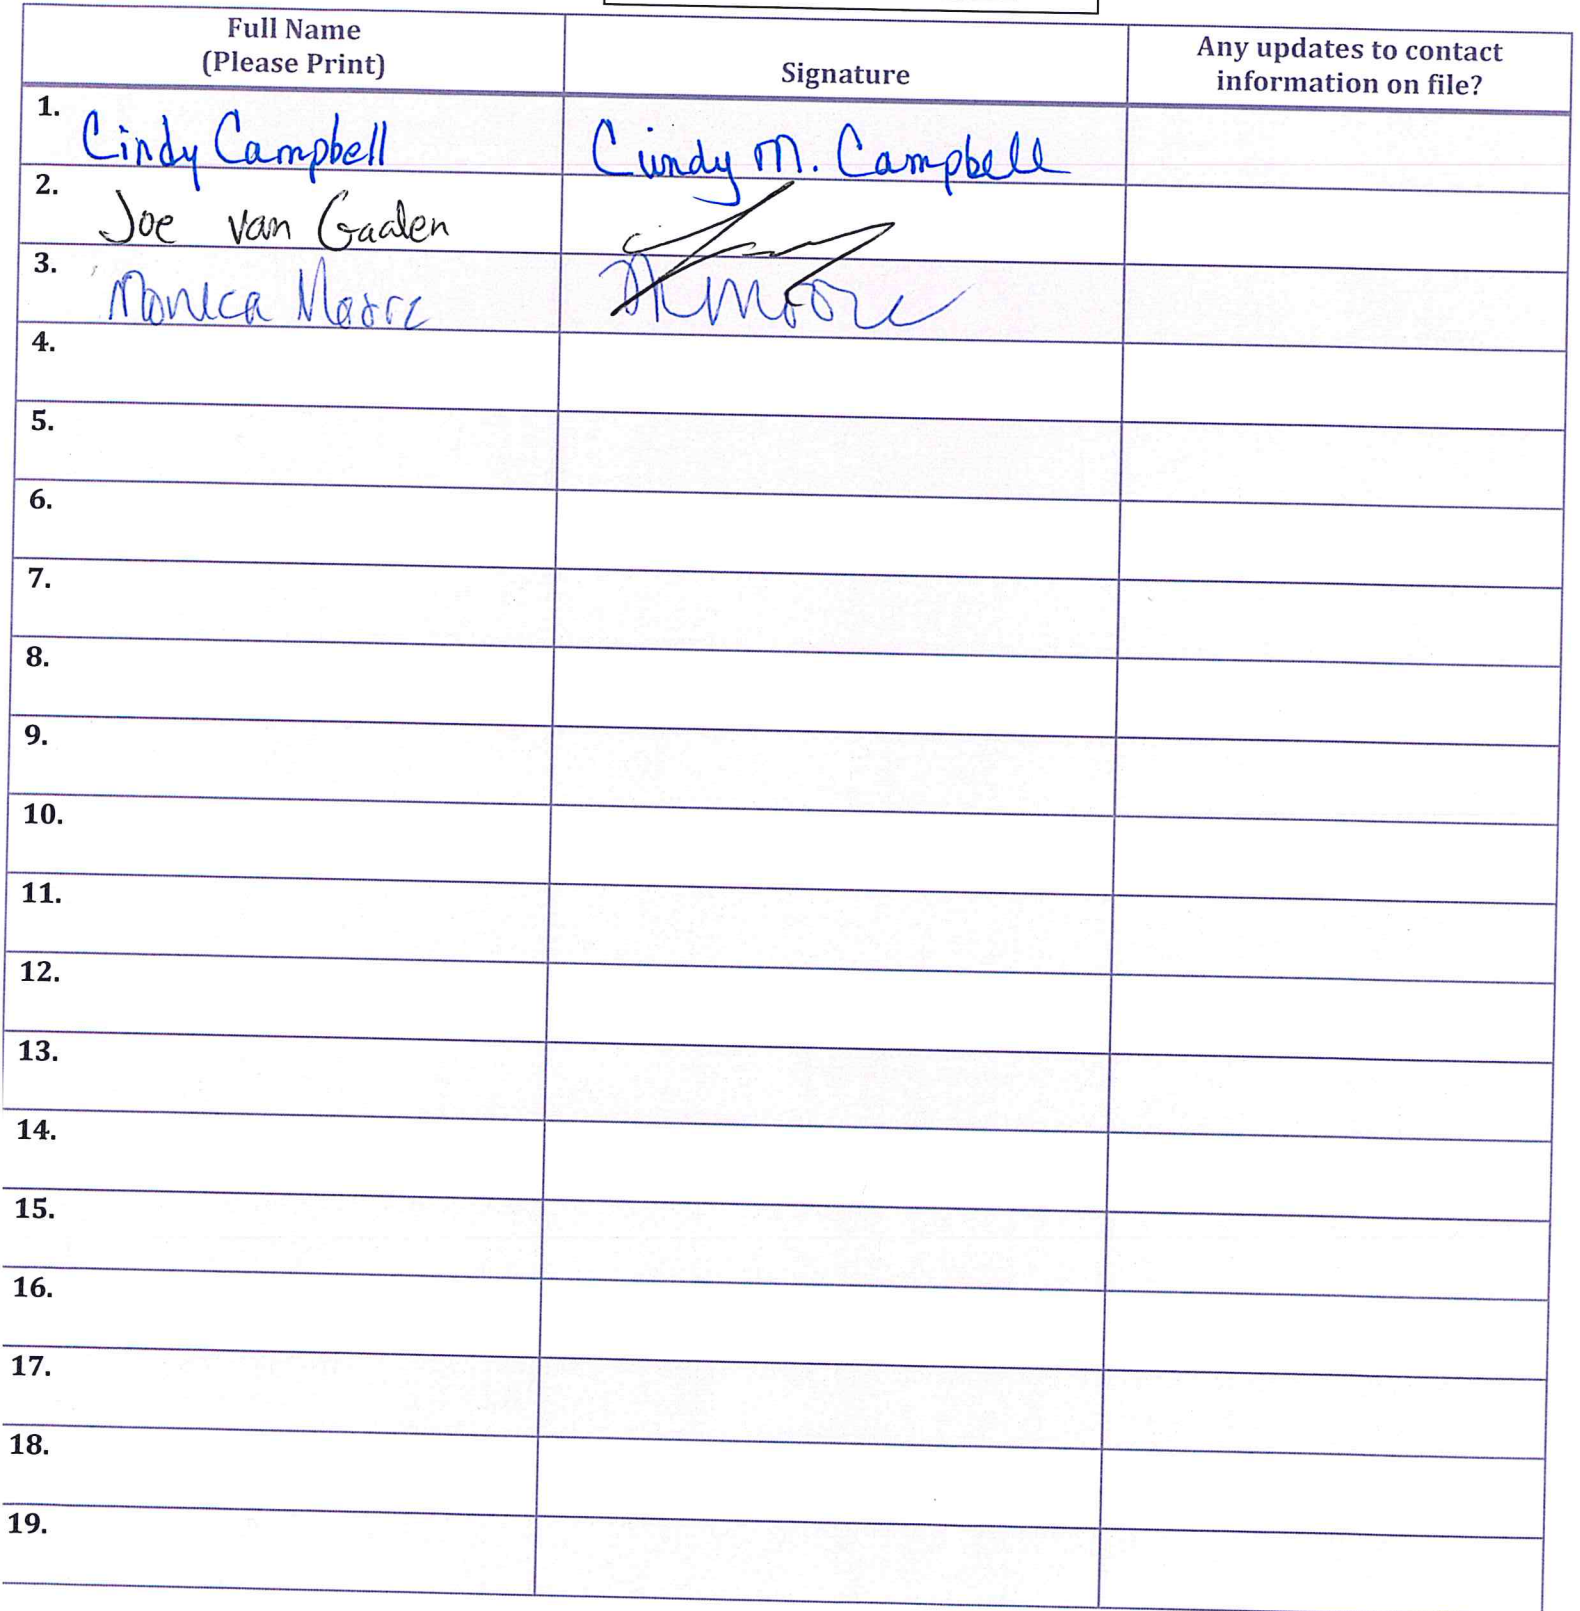 Full Name
(Please Print)
Signature
Any updates to contact
information on file?
1. Cindy Campbell Cindy M. Campbell
2. Joe van Gaalen
3. Monica Moore M Moore
4.
5.
6.
7.
8.
9.
10.
11.
12.
13.
14.
15.
16.
17.
18.
19.